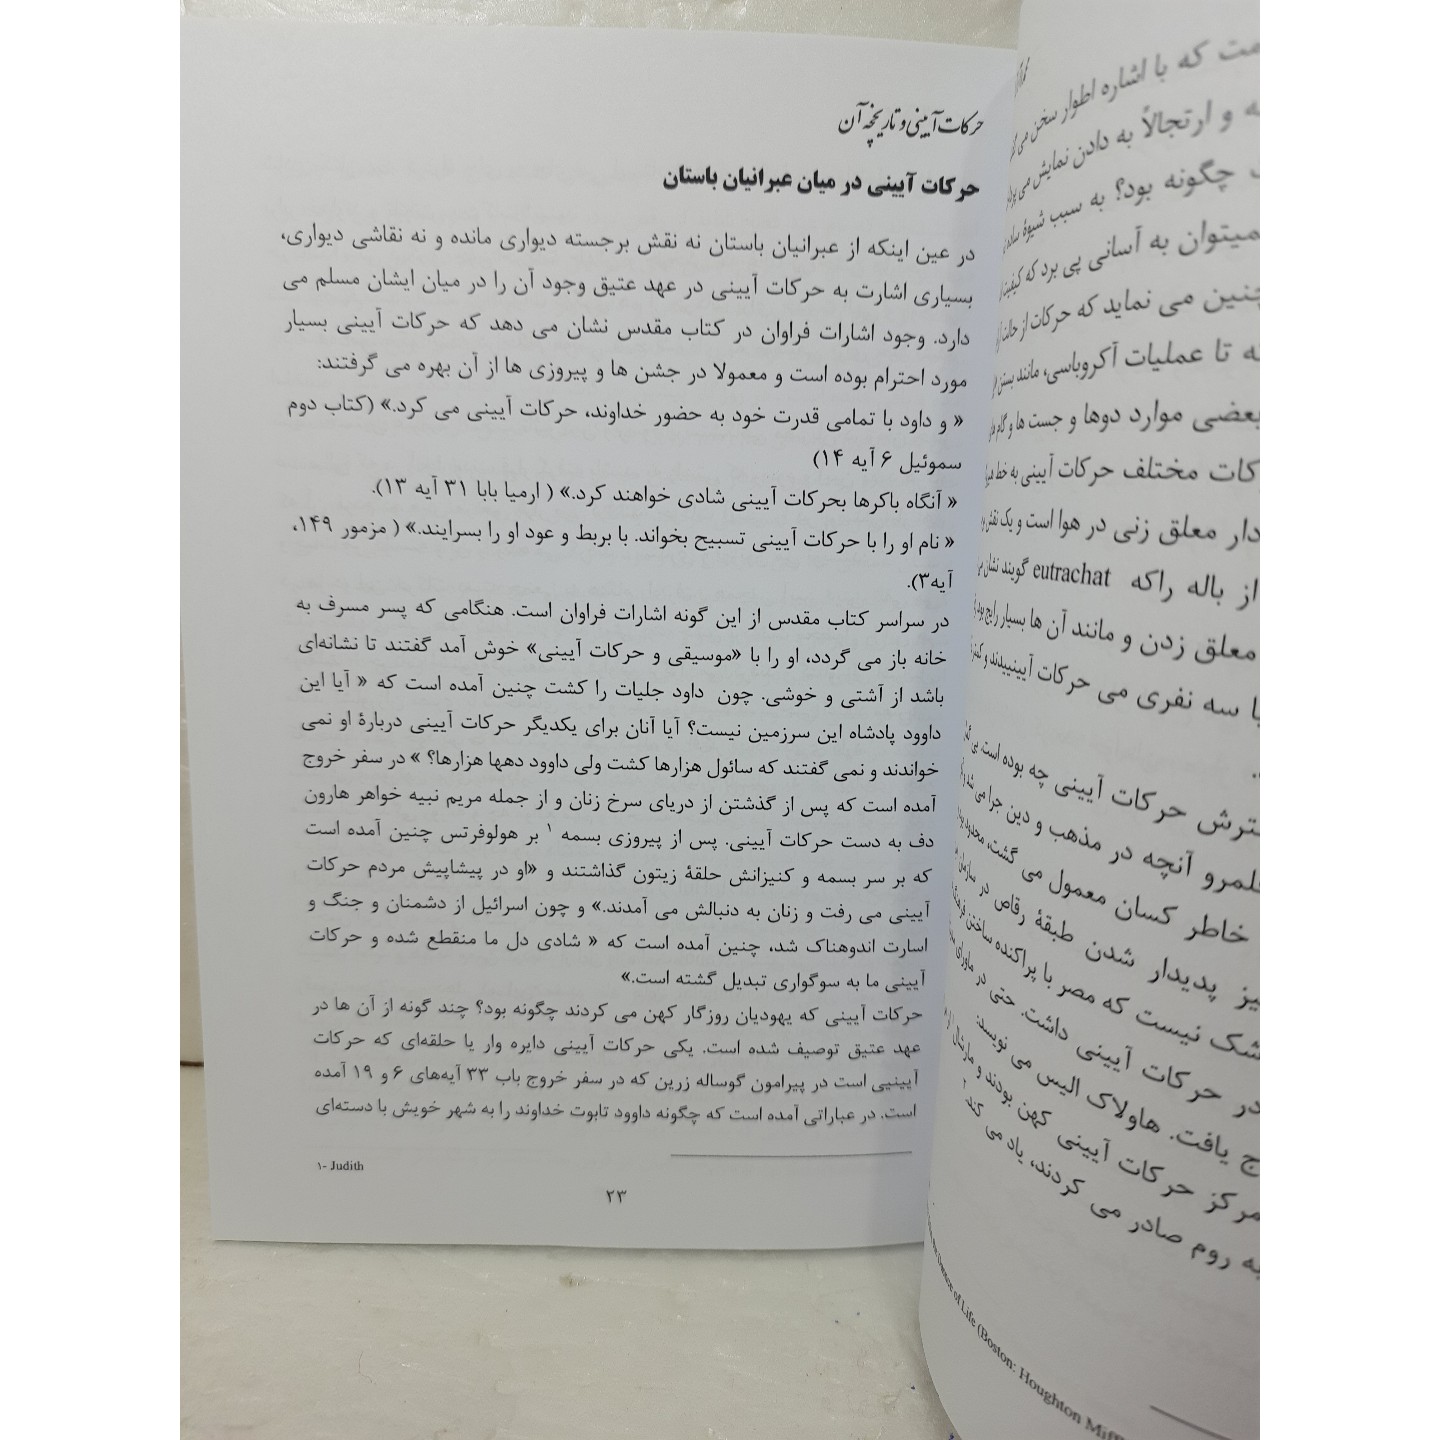 حرکات آیینی و تاریخچه آن
حرکات آیینی در میان عبرانیان باستان
در عین اینکه از عبرانیان باستان نه نقش برجسته دیواری مانده و نه نقاشی دیواری،
بسیاری اشارت به حرکات آیینی در عهد عتیق وجود آن را در میان ایشان مسلم می
دارد. وجود اشارات فراوان در کتاب مقدس نشان می دهد که حرکات آیینی بسیار
مورد احترام بوده است و معمولا در جشن ها و پیروزی ها از آن بهره می گرفتند:
« و داود با تمامی قدرت خود به حضور خداوند، حرکات آیینی می کرد.» (کتاب دوم
سموئیل ۶ آیه ۱۴)
« آنگاه باکرها بحرکات آیینی شادی خواهند کرد.» ( ارمیا بابا ۳۱ آیه ۱۳).
« نام او را با حرکات آیینی تسبیح بخواند. با بربط و عود او را بسرایند.» ( مزمور ۱۴۹،
آیه۳).
در سراسر کتاب مقدس از این گونه اشارات فراوان است. هنگامی که پسر مسرف به
خانه باز می گردد، او را با «موسیقی و حرکات آیینی» خوش آمد گفتند تا نشانه‌ای
باشد از آشتی و خوشی. چون داود جلیات را کشت چنین آمده است که « آیا این
داوود پادشاه این سرزمین نیست؟ آیا آنان برای یکدیگر حرکات آیینی دربارهٔ او نمی
خواندند و نمی گفتند که سائول هزارها کشت ولی داوود دهها هزارها؟ » در سفر خروج
آمده است که پس از گذشتن از دریای سرخ زنان و از جمله مریم نبیه خواهر هارون
دف به دست حرکات آیینی. پس از پیروزی بسمه ۱ بر هولوفرتس چنین آمده است
که بر سر بسمه و کنیزانش حلقهٔ زیتون گذاشتند و «او در پیشاپیش مردم حرکات
آیینی می رفت و زنان به دنبالش می آمدند.» و چون اسرائیل از دشمنان و جنگ و
اسارت اندوهناک شد، چنین آمده است که « شادی دل ما منقطع شده و حرکات
آیینی ما به سوگواری تبدیل گشته است.»
حرکات آیینی که یهودیان روزگار کهن می کردند چگونه بود؟ چند گونه از آن ها در
عهد عتیق توصیف شده است. یکی حرکات آیینی دایره وار یا حلقه‌ای که حرکات
آیینیی است در پیرامون گوساله زرین که در سفر خروج باب ۳۳ آیه‌های ۶ و ۱۹ آمده
است. در عباراتی آمده است که چگونه داوود تابوت خداوند را به شهر خویش با دسته‌ای
۱- Judith
۲۳
که با اشاره اطوار سخن می
و ارتجالاً به دادن نمایش می
چگونه بود؟ به سبب شیوهٔ
میتوان به آسانی پی برد که کیفیت
چنین می نماید که حرکات از حالت
تا عملیات آکروباسی، مانند بستن
بعضی موارد دوها و جست ها و گام
مختلف حرکات آیینی به خط
دار معلق زنی در هوا است و یک نقش
از باله راکه eutrachat گویند نشان
معلق زدن و مانند آن ها بسیار رایج بود
یا سه نفری می حرکات آیینییدند و
حرکات آیینی چه بوده است،
آنچه در مذهب و دین جرا می شد
خاطر کسان معمول می گشت، محدود
پدیدار شدن طبقهٔ رقاص در سازمان
شک نیست که مصر با پراکنده ساختن
در حرکات آیینی داشت. حتی در ماورای
یافت. هاولاک الیس می نویسد:
مرکز حرکات آیینی کهن بودند و مارشال
به روم صادر می کردند، یاد می کند ۲
Dance of Life (Boston: Houghton